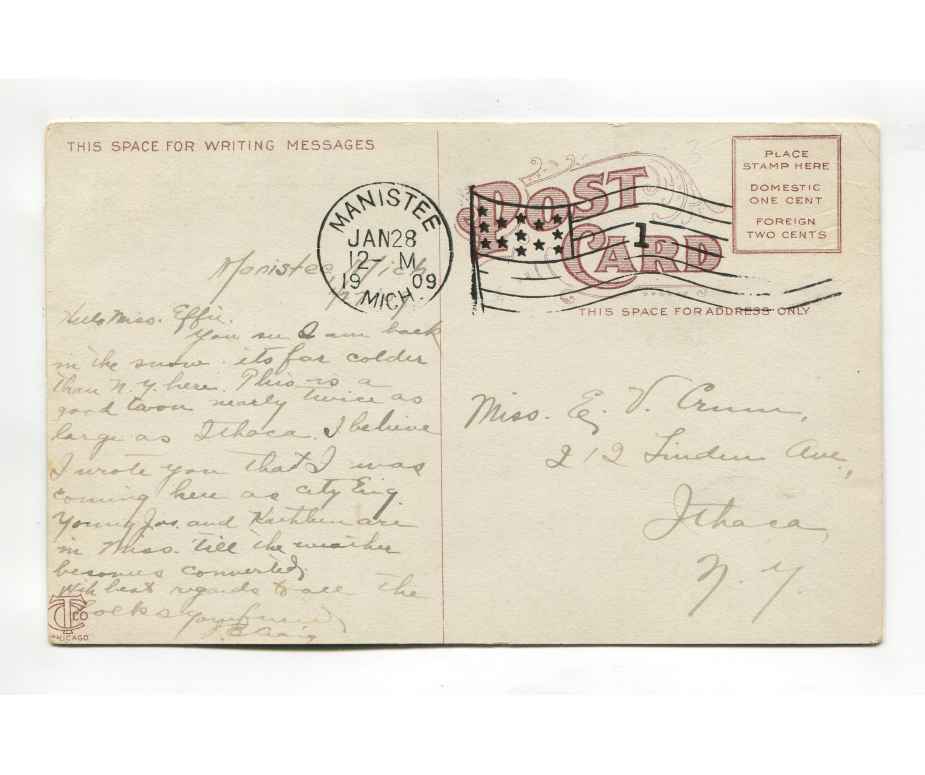 THIS SPACE FOR WRITING MESSAGES
Manistee, Mich
Hello Miss. Effie.
You see I am back
in the snow. its far colder
than N.Y. here. This is a
good town nearly twice as
large as Ithaca. I believe
I wrote you that I was
coming here as city Eng.
Young Jos. and Kathleen are
in Miss. till the weather
becomes converted,
With best regards to all the
folks
Your friend,
Craig
TC Co
CHICAGO
MANISTEE
JAN 28
12- M
19 09
MICH.
1
POST
CARD
PLACE
STAMP HERE
DOMESTIC
ONE CENT
FOREIGN
TWO CENTS
THIS SPACE FOR ADDRESS ONLY
Miss. E. V. Crum,
212 Linden Ave,
Ithaca
N.Y.